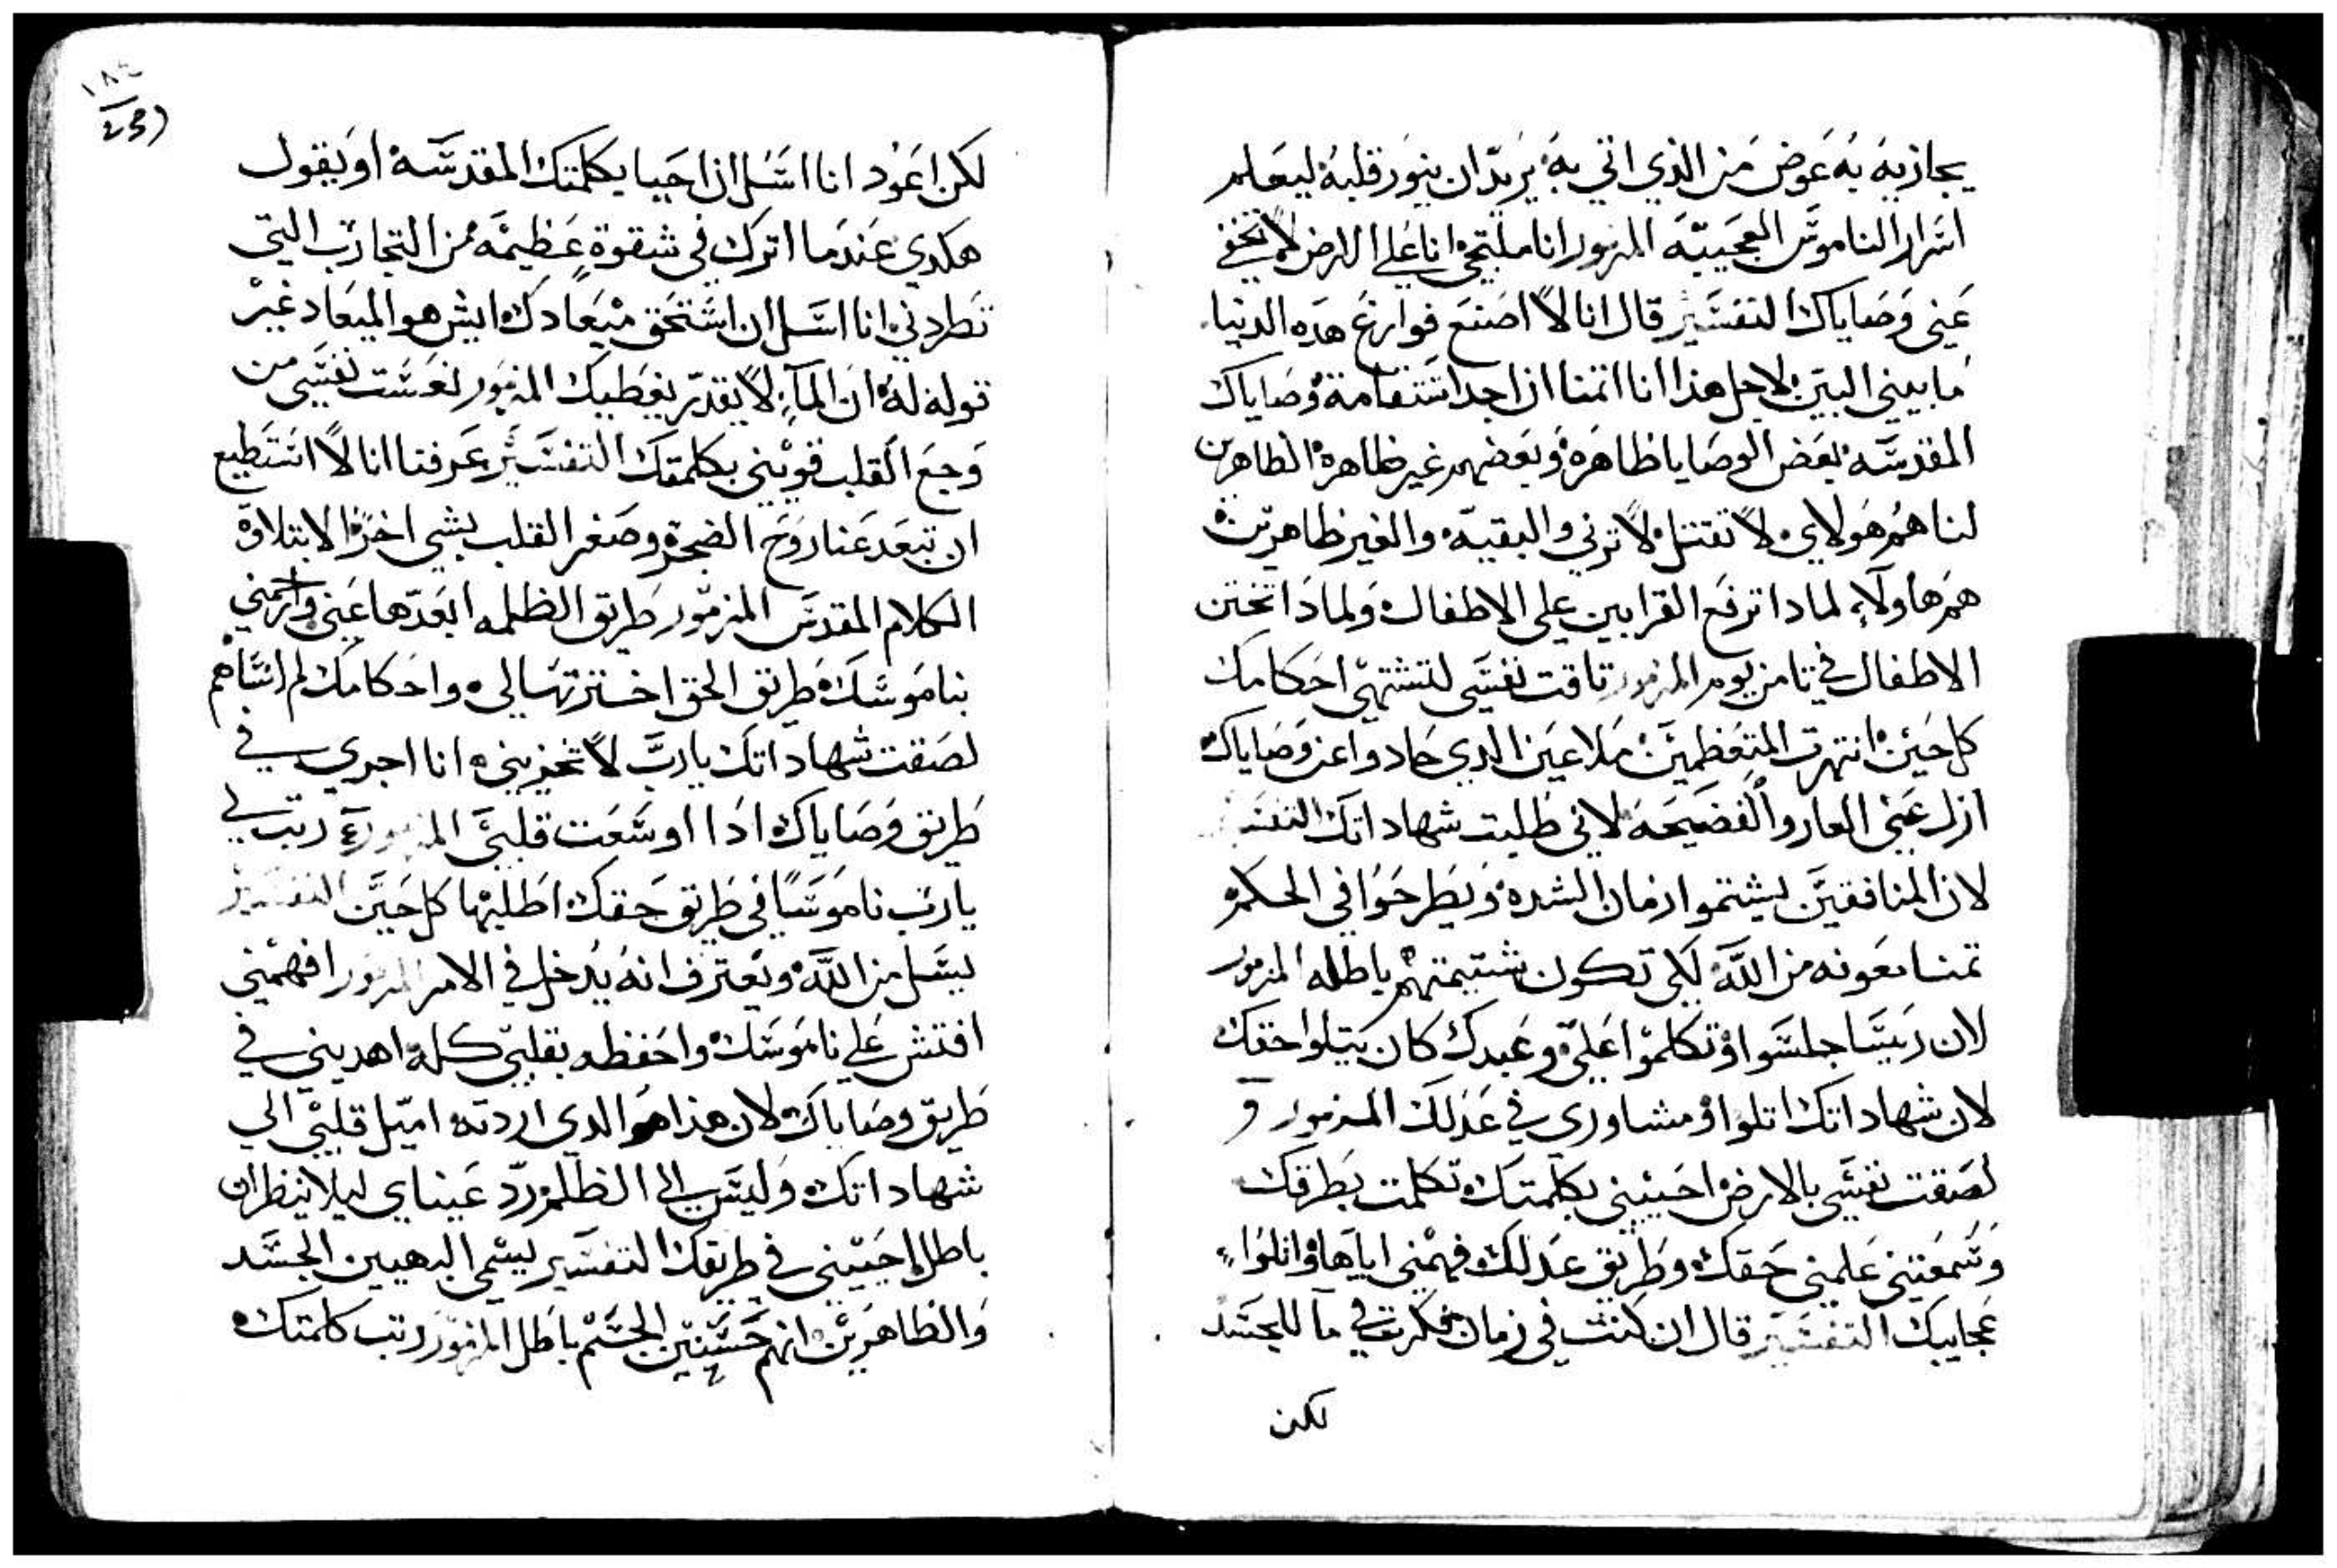 يجازيه به عوض من الذي اتي به يريد ان ينور قلبه ليعلم
اسرار الناموس العجيبه المزمور انا ملتجي انا علي الارض لا تخفي
عني وصاياك التفسير قال انا لا اصنع فوارغ هده الدنيا
ما بيني البين لاجل هذا انا اتمنا ان اجد استقامة وصاياك
المقدسه بعض الوصايا ظاهره وبعضهم غير ظاهره الظاهرين
لنا هم هولاي لا تقتل لا تزني والبقيه والغير ظاهرين
هم هاولاء لمادا ترفع القرابين علي الاطفال ولمادا تختن
الاطفال في تامن يوم المزمور تاقت نفسي لتشتهي احكامك
كل حين انتهرت المتعظمين ملاعين الدي حادوا عن وصاياك
ازل عني العار والفضيحه لاني طلبت شهاداتك التفسير
لان المنافقين يشتموا ازمان الشده ويطرحوا في الحكم
تمنا معونه من الله لكي تكون شتيمتهم باطله المزمور
لان ريسا جلسوا وتكلموا علي وعبدك كان يتلوا حقك
لان شهاداتك اتلوا ومشاوري في عدلك المزمور
لصقت نفسي بالارض احييني بكلمتك تكلمت بطرقك
وسمعتني علمني حقك وطريق عدلك فهمني اياها واتلوا
عجايبك التفسير قال ان كنت في زمان فكرت في ما للجسد
لكن
لكن اعود انا اسل ان احيا بكلمتك المقدسه او يقول
هكدي عندما اترك في شقوة عظيمه من التجارب التي
تطردني انا اسل ان استحق ميعادك ايش هو الميعاد غير
قوله له ان الماء لا يقدر يغطيك المزمور نعست نفسي من
وجع القلب قويني بكلمتك التفسير عرفنا انا لا استطيع
ان تبعد عنا روح الضجرة وصغر القلب بشي اخر الا بتلاوة
الكلام المقدس المزمور طريق الظلمه ابعدها عني وارحمني
بناموسك طريق الحق اخترتها لي واحكامك لم انساهم
لصقت شهاداتك يارب لا تخزيني انا اجري في
طريق وصاياك ادا اوسعت قلبي المزمور رتب لي
يارب ناموسا في طريق حقك اطلبها كل حين التفسير
يسل من الله ويعترف انه يدخل في الامر المزمور افهمني
افتش علي ناموسك واحفظه بقلبي كله اهديني في
طريق وصاياك لان هذا هو الدي اردته اميل قلبي الي
شهاداتك وليس الي الظلم رد عيناي ليلا ينظران
باطلا احييني في طريقك التفسير يسمي الدهبين الجسد
والظاهرين انهم حسنين الجسم باطل المزمور رتب كلمتك